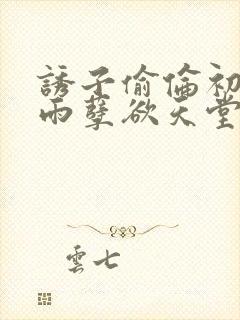 誘子偷倫初
雨孽欲天堂
雲七